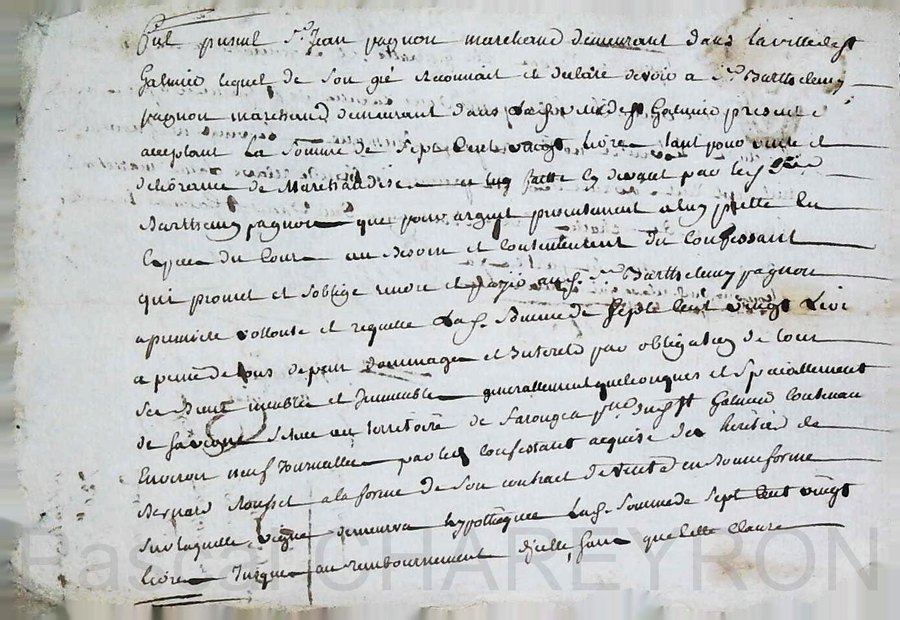 fut present Sr. Jean pagnon marchand demeurant dans la ville de st
Galmier lequel de son gré reconnait et declare devoir a Sr. Barthelemy
pagnon marchand demeurant dans lad. ville de st Galmier present &
acceptant La somme de Sept Cent vingt livres tant pour vente et
delivrance de Marchandises a luy faitte cy devant par led. Sr.
Barthelemy pagnon que pour argent presentement a luy prette en
Especes du Cours au desoin et Contentement du Confessant
qui promet et soblige rendre et payer aud. Sr. Barthelemy pagnon
a premiere vollonté et requette Lad. Somme de Sept Cent vingt Livres
a peine de tous depens dommages et Interets par obligation de tous
ses Biens meubles et Immeubles generallement quelconques et Specialement
de sa vigne Scituée au territoire de psse dud. st Galmier Contenant
Environ neuf Journallées par led. Confessant acquise des heritiers de
Bernard Rousset a la forme de Son contract de vente en Bonne forme
Sur laquelle vigne demeurera hypothequée Lad. Somme de Sept Cent vingt
livres Jusques au remboursement d'jcelle, sans que cette Clause
Pascal CHAREYRON